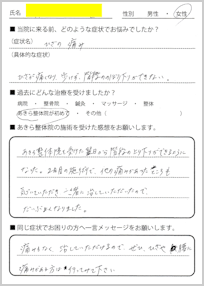 氏名 性別 男性・女性
■当院に来る前、どのような症状でお悩みでしたか？
(症状名) ひざの痛み
(具体的な症状)
ひざが痛くなり、歩くのが、階段ののぼり下りができない。
■過去にどんな治療を受けましたか？
病院・整骨院・鍼灸・マッサージ・整体
あきら整体院が初めて・その他（ ）
■あきら整体院の施術を受けた感想をお願いします。
あきら整体院を受けた翌日から階段ののぼり下りができるように
なった。2回目の施術で、他の痛みがあったところも
一緒に治していただいたので、
だいぶ楽になりました。
■同じ症状でお困りの方へ一言メッセージをお願いします。
痛みもなく治していただけるので、ぜひ、ひざや腰に
痛みがある方は行ってみて下さい